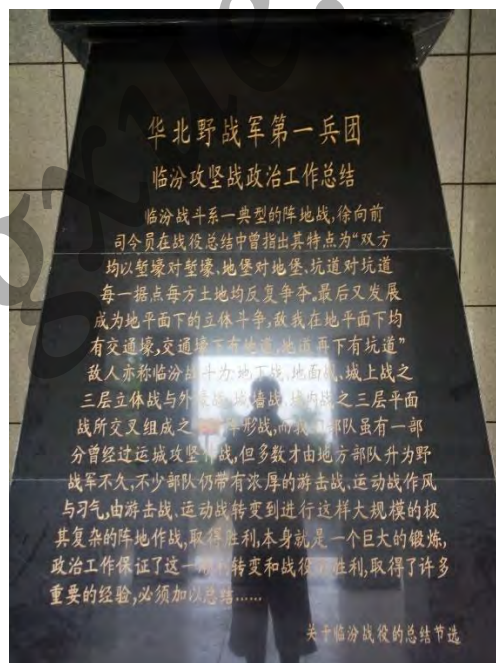 华北野战军第一兵团
临汾攻坚战政治工作总结
临汾战斗系一典型的阵地战,徐向前
司令员在战役总结中曾指出其特点为“双方
均以堑壕对堑壕、地堡对地堡、坑道对坑道
每一据点每方土地均反复争夺。最后又发展
成为地平面下的立体斗争,敌我在地平面下均
有交通壕,交通壕下有地道,地道再下有坑道”
敌人亦称临汾战斗为:地下战、地面战、城上战之
三层立体战与外壕战、城墙战、城内战之三层平面
战所交叉组成之 阵形战,而我 部队虽有一部
分曾经过运城攻坚作战,但多数才由地方部队升为野
战军不久,不少部队仍带有浓厚的游击战、运动战作风
与习气,由游击战、运动战转变到进行这样大规模的极
其复杂的阵地作战,取得胜利,本身就是一个巨大的锻炼,
政治工作保证了这一 转变和战役 胜利,取得了许多
重要的经验,必须加以总结……
关于临汾战役的总结节选